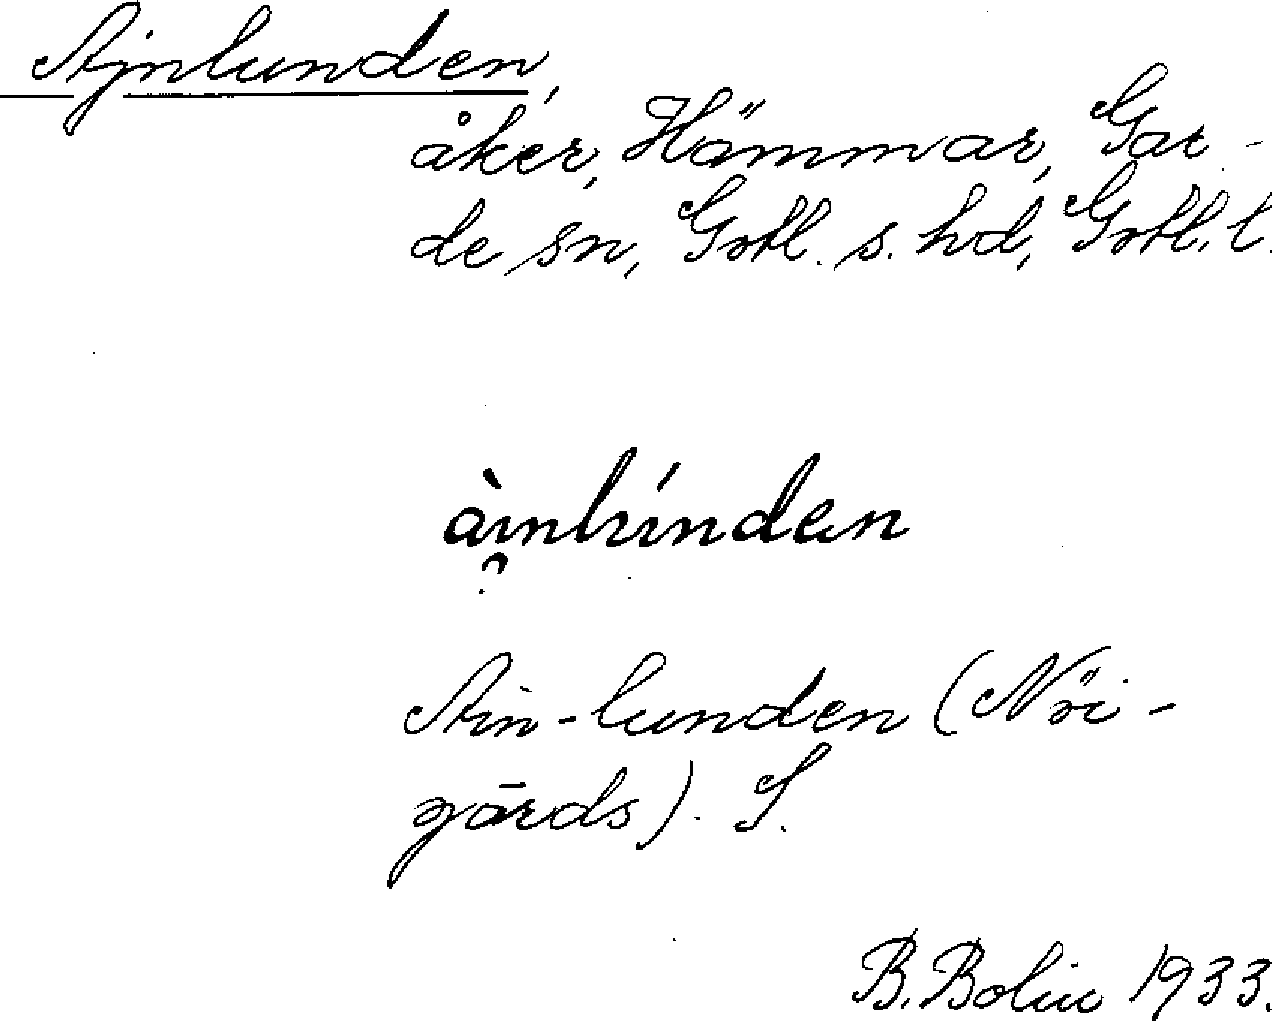 Ajnlunden,
åker, Hämmar, Gar-
de sn, Gotl. s. hd, Gotl. l.
àinlúnden
Ain-lunden (Nöi-
gārds). S.
B. Bolin 1933.